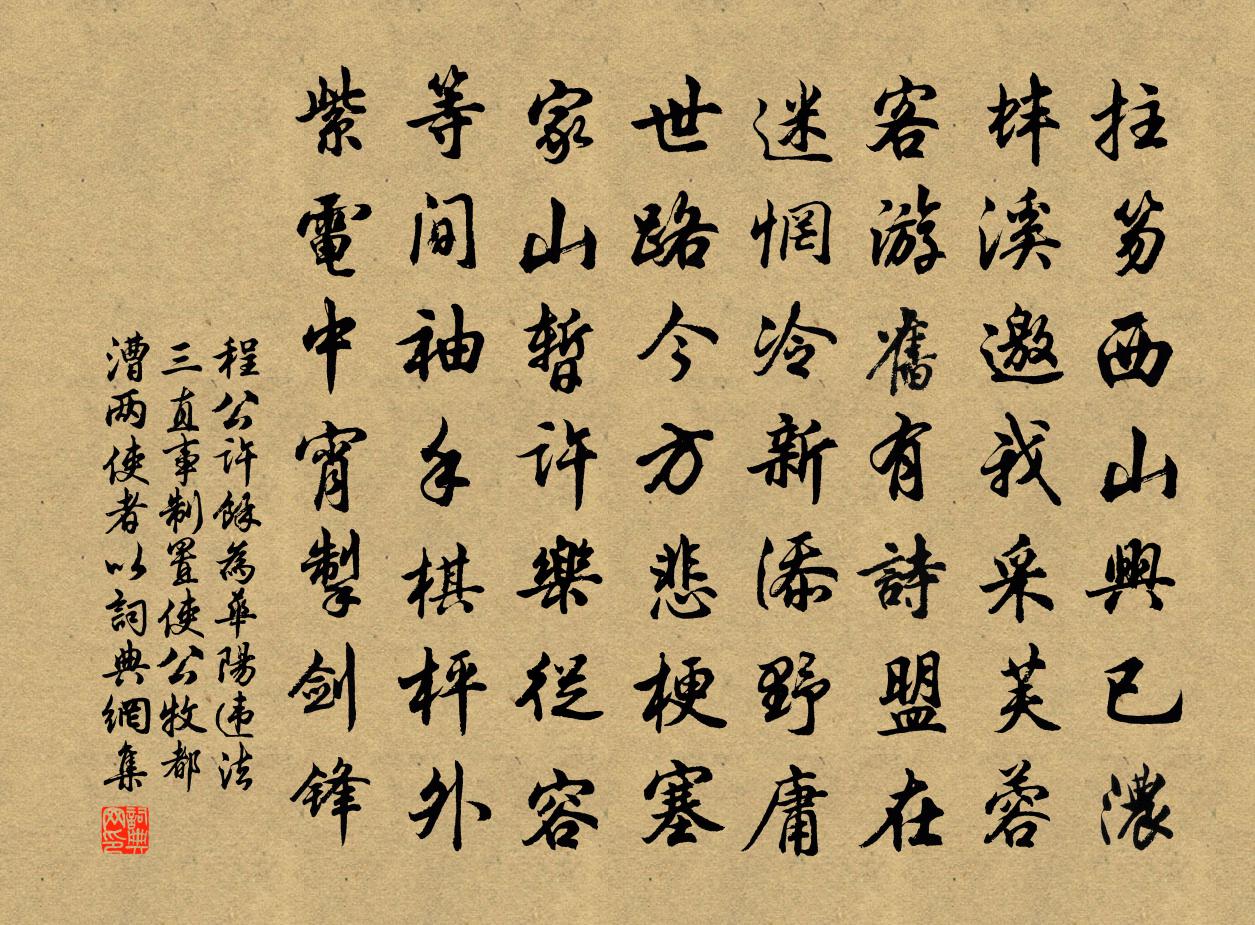 拄笏西山興已濃
蚌溪邀我采芙蓉
客游舊有詩盟在
迷惘冷新添野庸
世路今方悲梗塞
家山暫許樂從容
等间袖手棋枰外
紫電中宵掣剑锋
程公许餘為華陽违法
三直事制置使公牧都
漕两使者以詞典網集
詞典网印